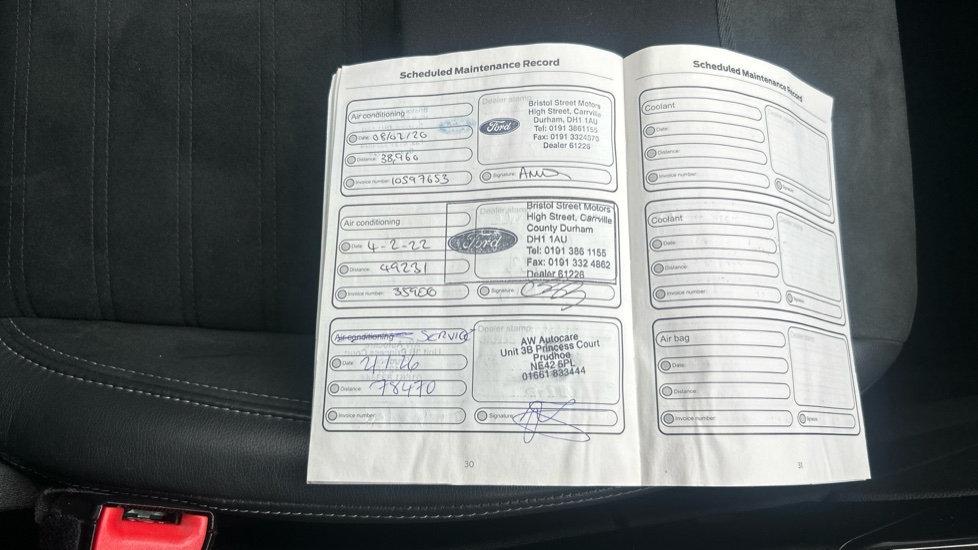 Scheduled Maintenance Record
Air conditioning
Date: 08/02/20
Distance: 38,960
Invoice number: 10597653
Dealer stamp
Ford
Bristol Street Motors
High Street, Carrville
Durham, DH1 1AU
Tel: 0191 3861155
Fax: 0191 3324875
Dealer 61226
Signature:
Air conditioning
Date: 4-2-22
Distance: 49231
Invoice number:
Dealer stamp
Ford
Bristol Street Motors
High Street, Carrville
County Durham
DH1 1AU
Tel: 0191 386 1155
Fax: 0191 332 4862
Dealer 61226
Signature:
Air conditioning SERVICE
Date:
Distance: 78470
Invoice number:
Dealer stamp
AW Autocare
Unit 3B Princess Court
Prudhoe
NE42 6PL
01661 833444
Signature:
30
Scheduled Maintenance Record
Coolant
Date:
Distance:
Invoice number:
Coolant
Date:
Distance:
Invoice number:
Air bag
Date:
Distance:
Invoice number:
31